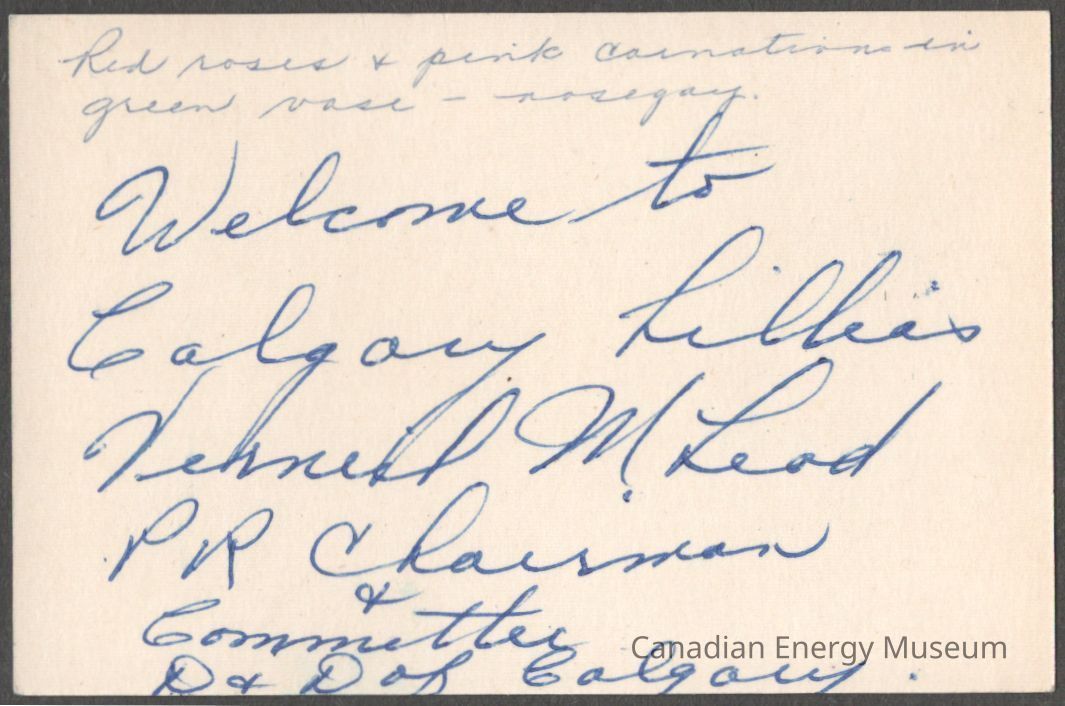 Red roses & pink carnations in
green vase - nosegay.
Welcome to
Calgary Lillias
Verneil M. Leod
PR Chairman
&
Committee
D & D of Calgary.
Canadian Energy Museum